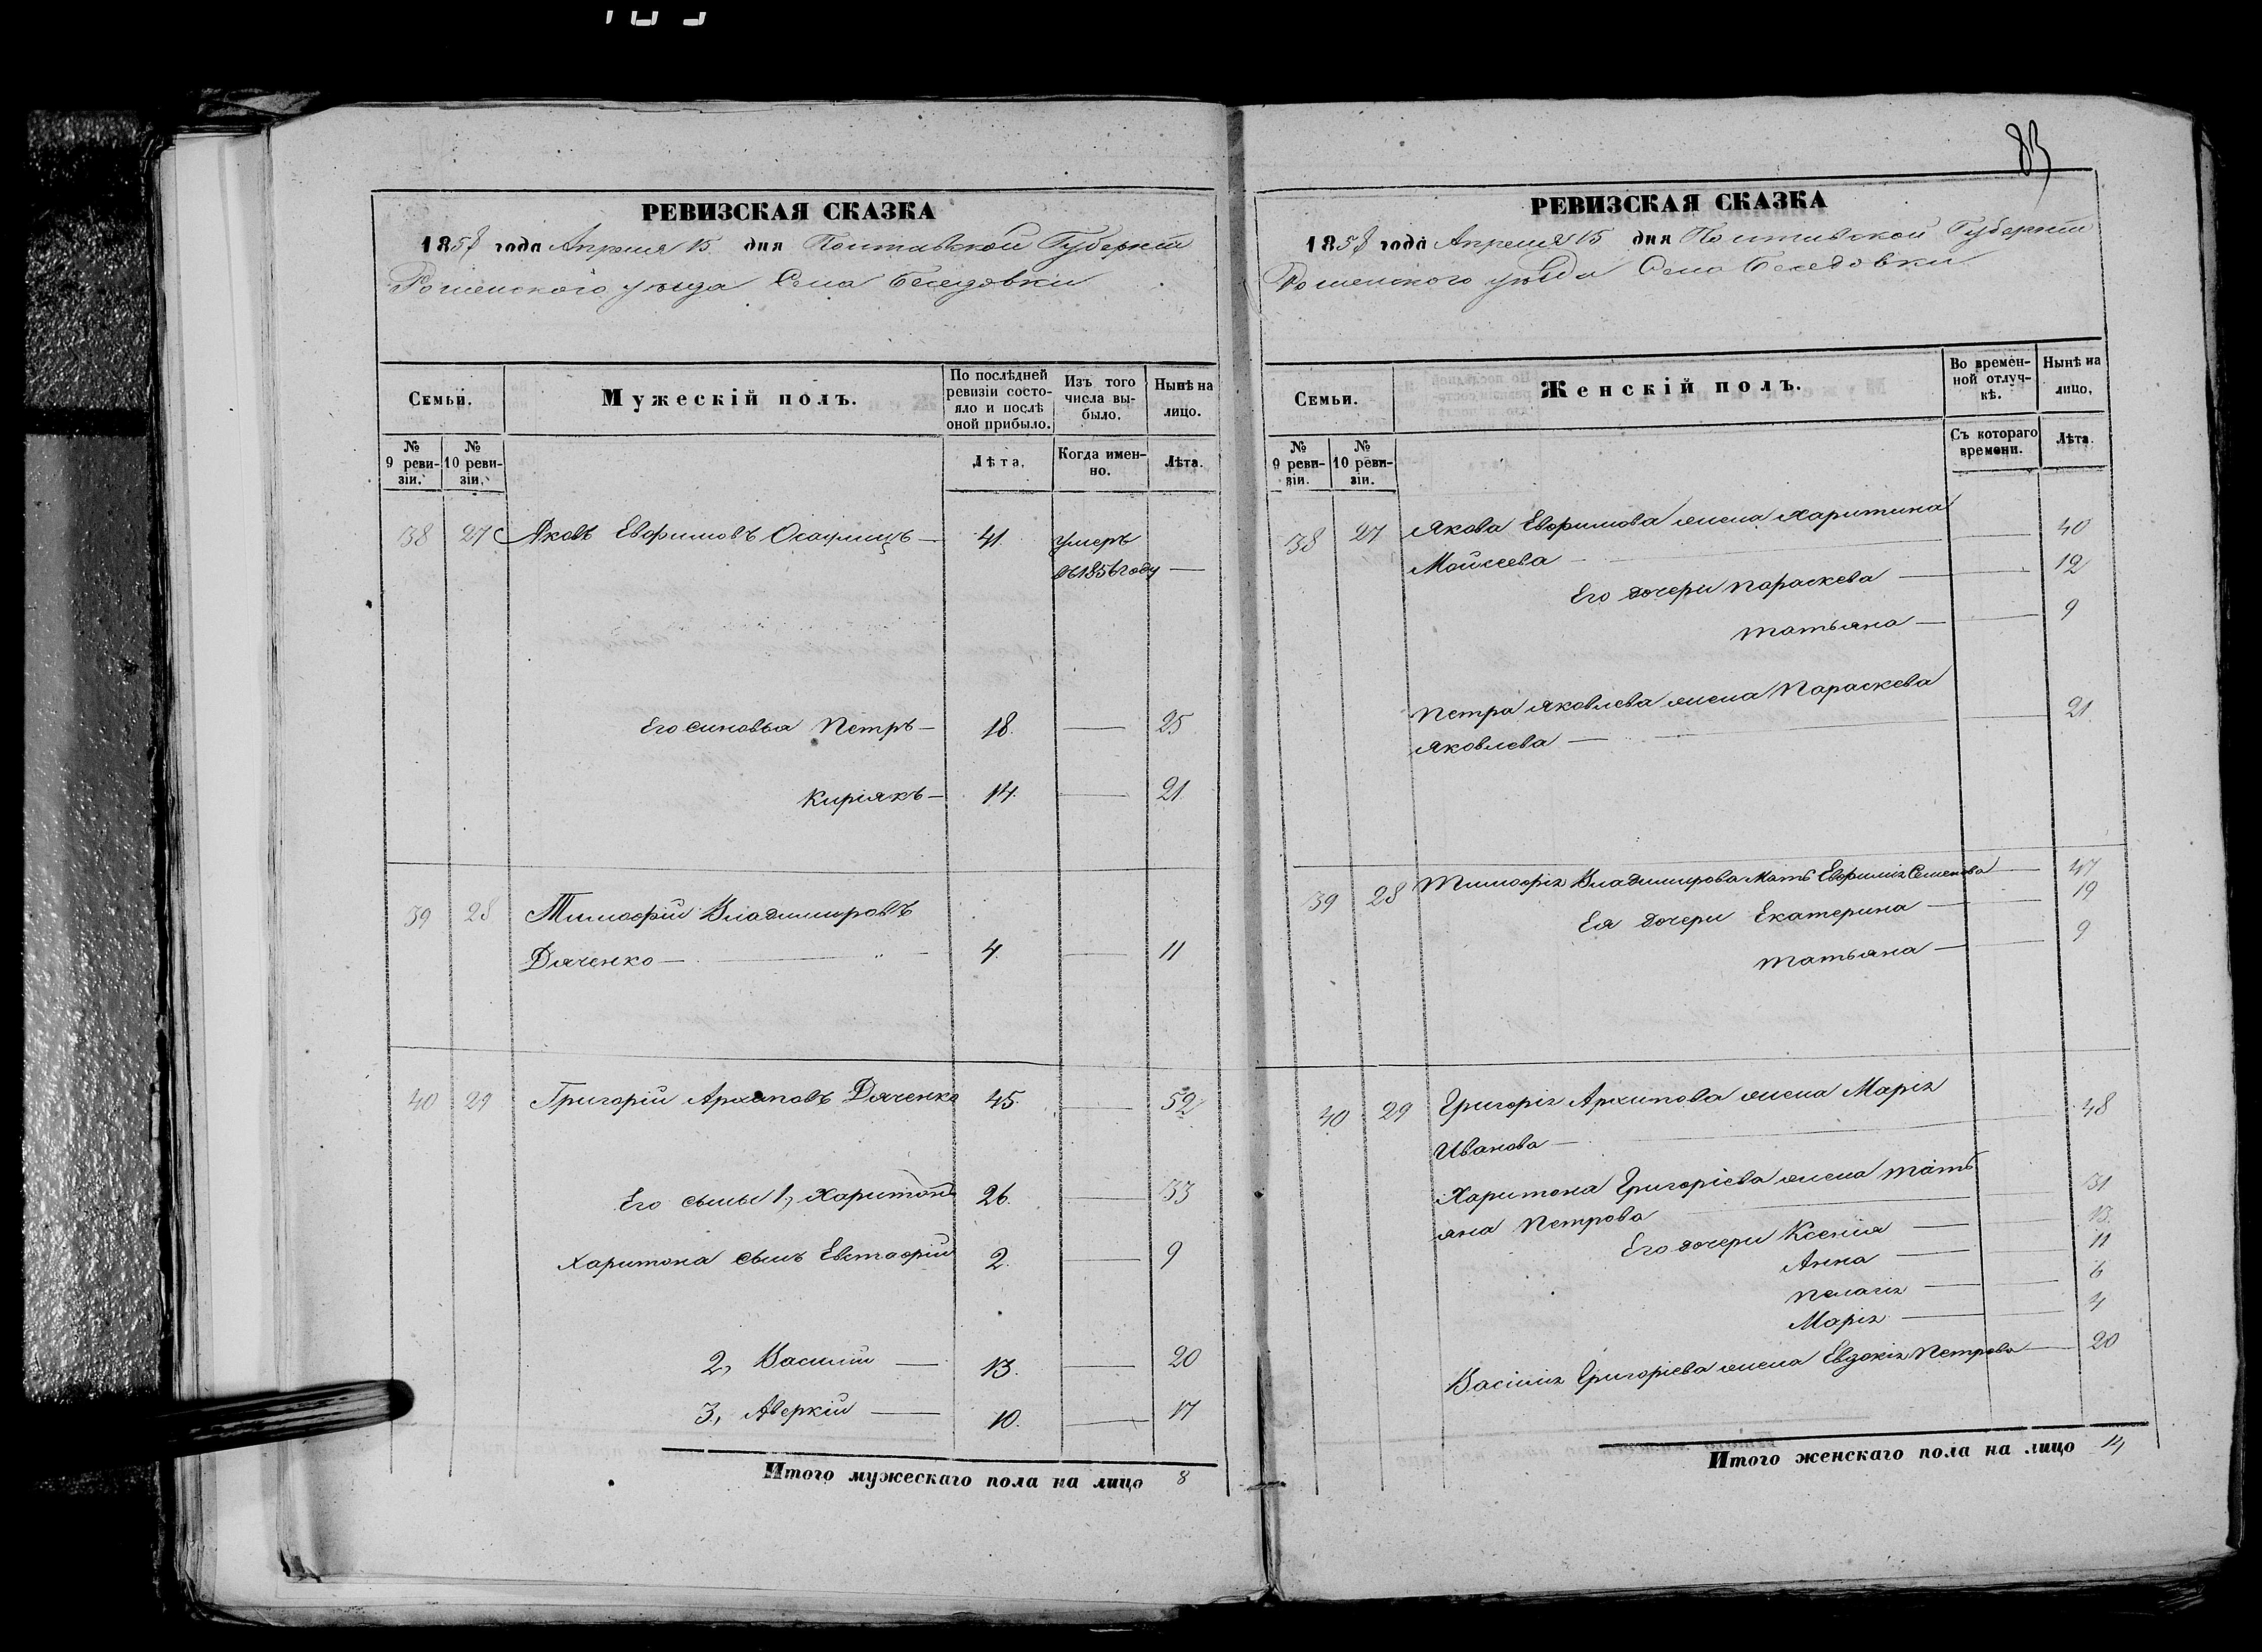 РЕВИЗСКАЯ СКАЗКА
1858 года Апреля 15 дня Полтавской Губерніи
Роменского уезда Села Беседовки
Семьи.
Мужескій полъ.
По послѣдней ревизіи состояло и послѣ оной прибыло.
Изъ того числа выбыло.
Нынѣ на лицо.
№ 9 ревизіи.
№ 10 ревизіи.
Лѣта.
Когда именно.
Лѣта.
38 27 Яковъ Евфимовъ 41. умеръ
въ 1856 году —
Его синовья Петръ — 18. — 25
Киріякъ — 14. — 21.
39 28 Тимофій Владимировъ
Дяченко — 4. — 11
40 29 Григорій Архиповъ Дяченко 45. — 52
Его сыны 1, Харитонъ 26. — 33
Харитона сынъ Евстафій 2. — 9
2, Василій — 13. — 20
3, Аверкій — 10. — 17
Итого мужескаго пола на лицо 8
83
РЕВИЗСКАЯ СКАЗКА
1858 года Апреля 15 дня Полтавской Губерніи
Роменского уезда Села Беседовки
Семьи.
Женскій полъ.
Во временной отлучкѣ.
Нынѣ на лицо.
№ 9 ревизіи.
№ 10 ревизіи.
Съ котораго времени.
Лѣта.
38 27 Якова Евфимова жена Харитина
Мойсеева — 40
Его дочери Параскева — 12
Татьяна — 9
Петра Яковлева жена Параскева
Яковлева — 21.
39 28 Тимофія Владимирова Мать Евфимія Семенова — 47
Ея дочери Екатерина — 19
Татьяна — 9
40 29 Григорія Архипова жена Марія
Иванова — 48
Харитона Григоріева жена Тать
яна Петрова — 31
Его дочери Ксенія — 13.
Анна — 11
Пелагія — 6
Марія — 4
Василія Григоріева жена Евдокія Петрова — 20
Итого женскаго пола на лицо 14